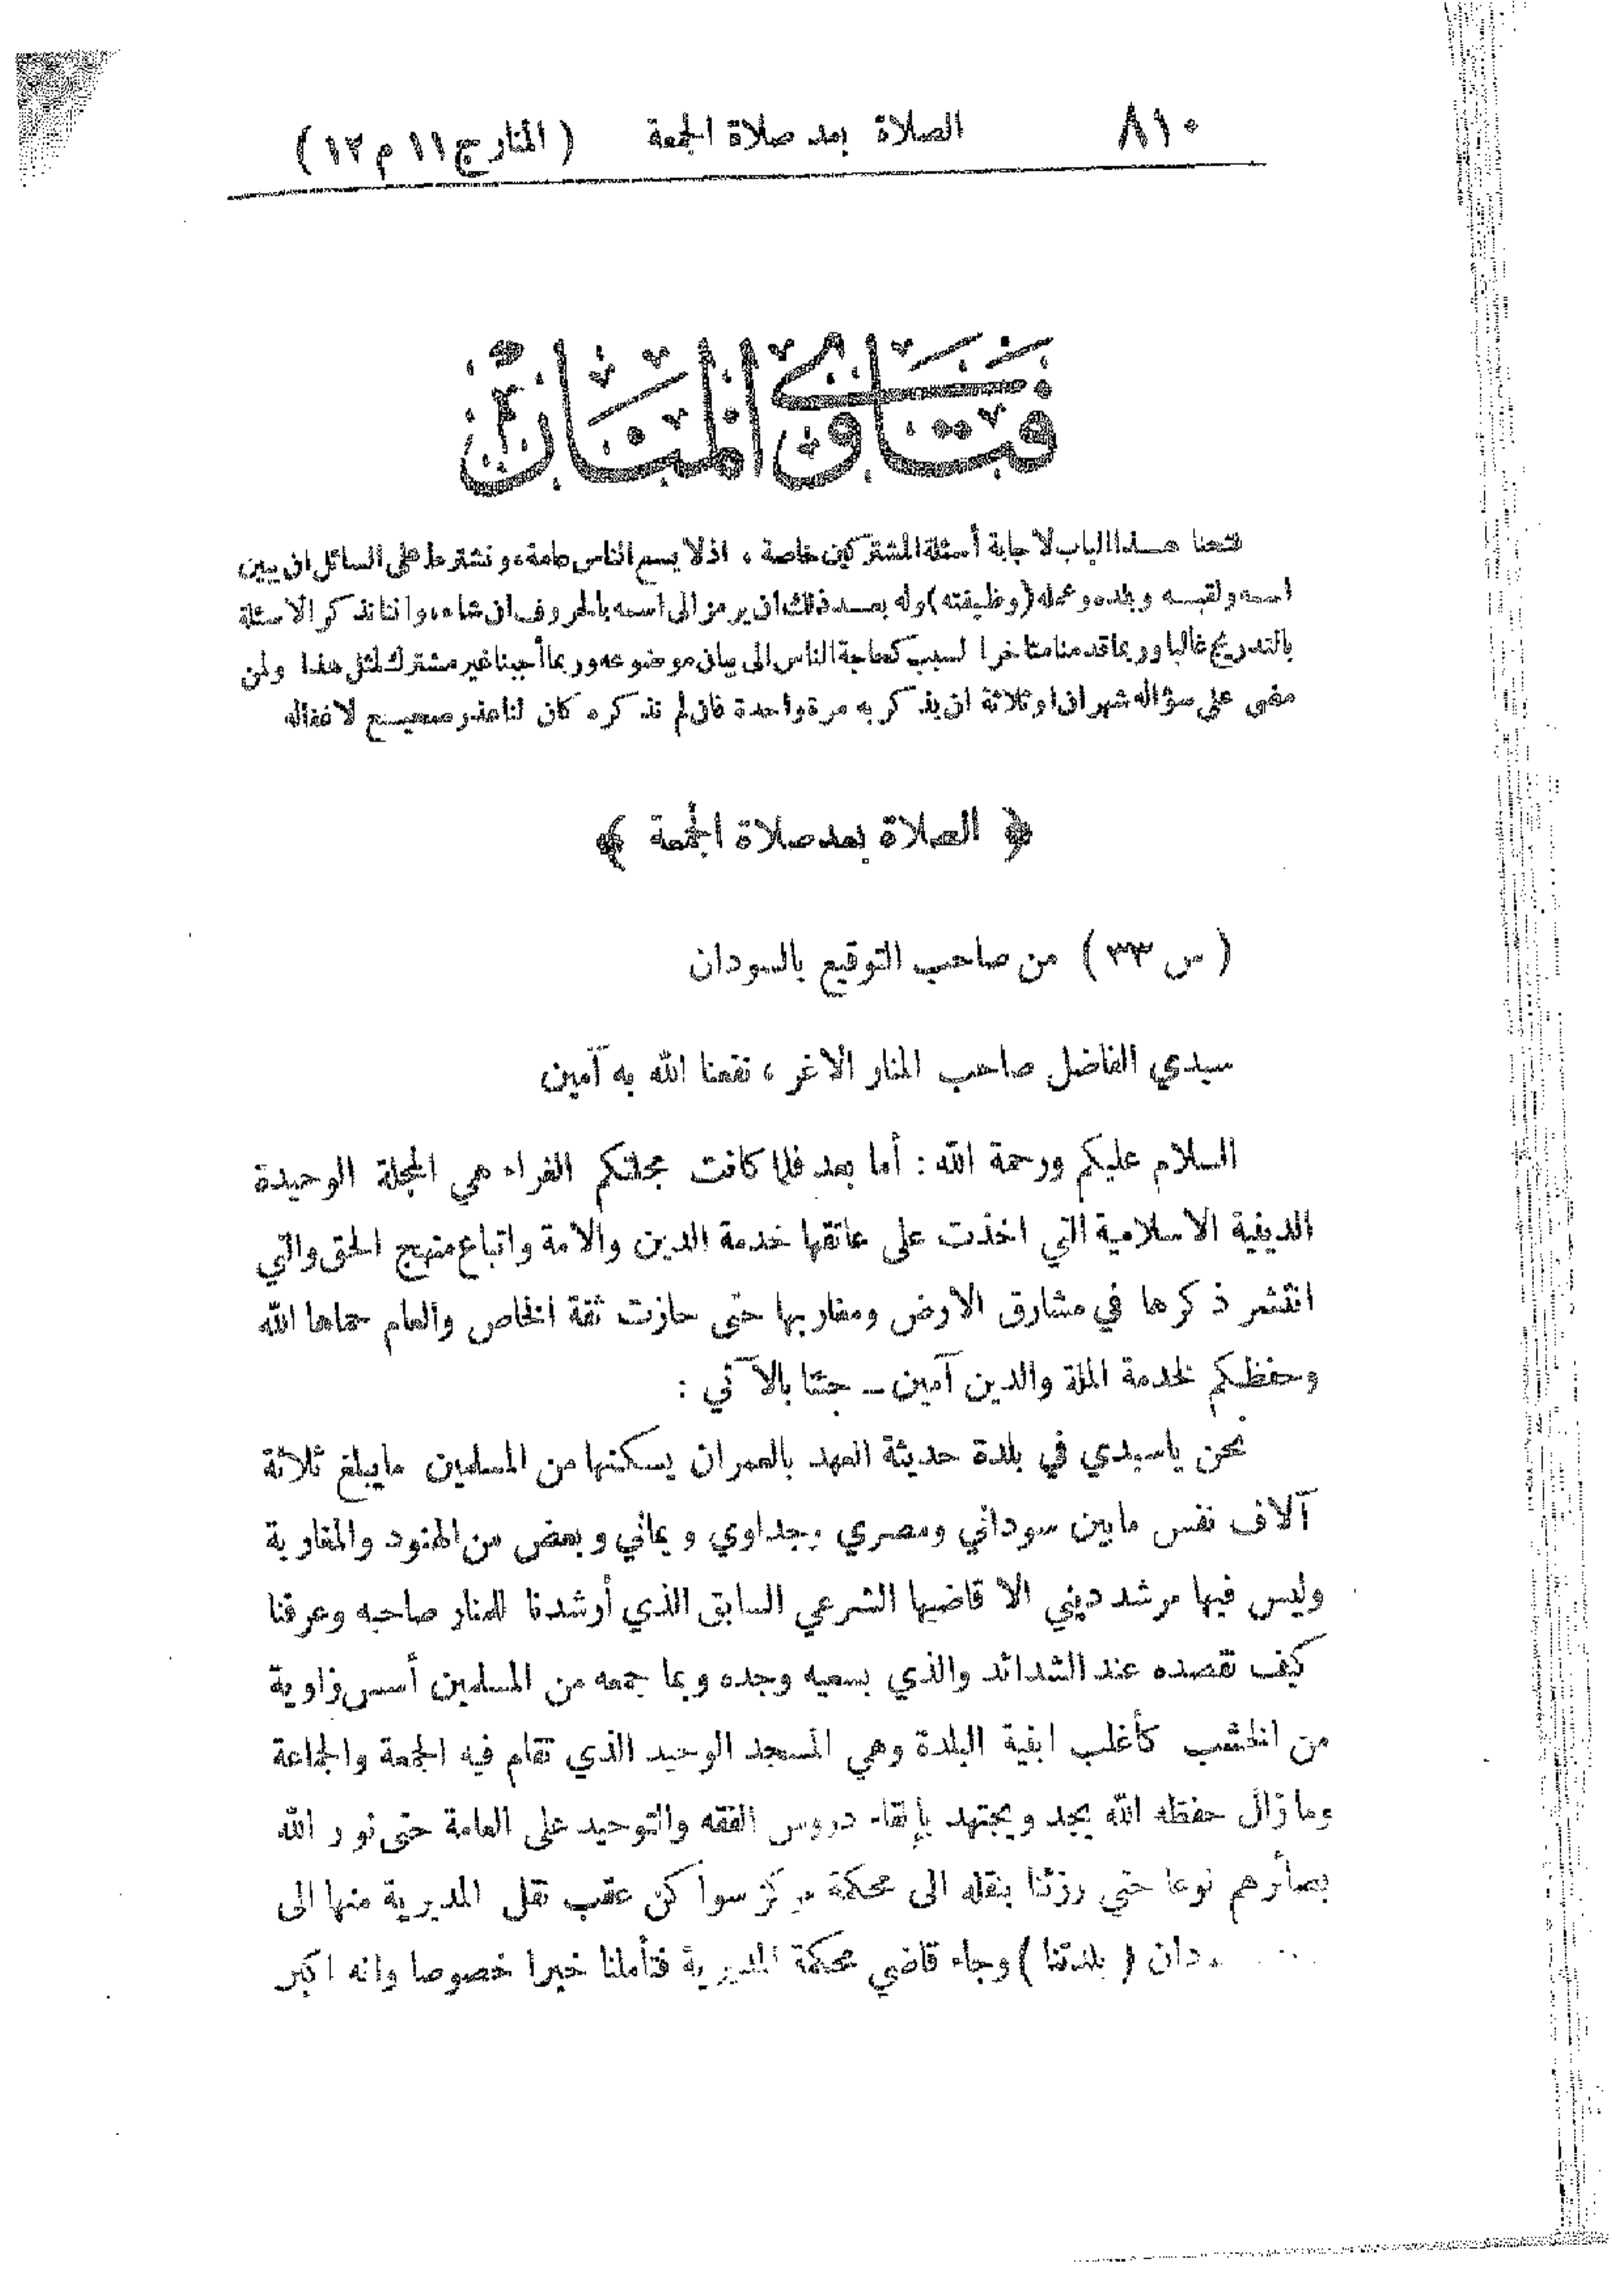 ٨١٠ الصلاة بعد صلاة الجمعة (المنار ج ١١ م ١٣)
فتاوى المنار
فتحنا هذا الباب لاجابة أسئلة المشتركين خاصة ، اذ لا يسع الناس عامة، ونشترط على السائل ان يبين
اسمه ولقبه وبلده وعمله (وظيفته) وله بعد ذلك ان يرمز الى اسمه بالحروف ان شاء، واننا نذكر الاسئلة
بالتدريج غالبا وربما قدمنا متاخرا لسبب كحاجة الناس الى بيان موضوعه وربما أجبنا غير مشترك لمثل هذا ولمن
مضى على سؤاله شهران او ثلاثة ان يذكر به مرة واحدة فان لم نذكره كان لنا عذر صحيح لاغفاله
﴿ الصلاة بعد صلاة الجمعة ﴾
(س ٣٣) من صاحب التوقيع بالسودان
سيدي الفاضل صاحب المنار الاغر ، نفعنا الله به آمين
السلام عليكم ورحمة الله : أما بعد فلما كانت مجلتكم الغراء هي المجلة الوحيدة
الدينية الاسلامية التي اخذت على عاتقها خدمة الدين والامة واتباع منهج الحق والتي
انتشر ذكرها في مشارق الارض ومغاربها حتى حازت ثقة الخاص والعام حماها الله
وحفظكم لخدمة الملة والدين آمين ــ جئنا بالآتي :
نحن ياسيدي في بلدة حديثة العهد بالعمران يسكنها من المسلمين مايبلغ ثلاثة
آلاف نفس مابين سوداني ومصري وجداوي ويماني وبعض من الهنود والمغاربة
وليس فيها مرشد ديني الا قاضيها الشرعي السابق الذي أرشدنا للمنار صاحبه وعرفنا
كيف نقصده عند الشدائد والذي بسعيه وجده وبما جمعه من المسلمين أسس زاوية
من الخشب كأغلب ابنية البلدة وهي المسجد الوحيد الذي تقام فيه الجمعة والجماعة
وما زال حفظه الله يجد ويجتهد بإلقاء دروس الفقه والتوحيد على العامة حتى نور الله
بصائرهم نوعا حتى رزئنا بنقله الى محكمة مركز سواكن عقب نقل المديرية منها الى
(بلدتنا) وجاء قاضي محكمة المديرية فتأملنا خيرا خصوصا وانه اكبر